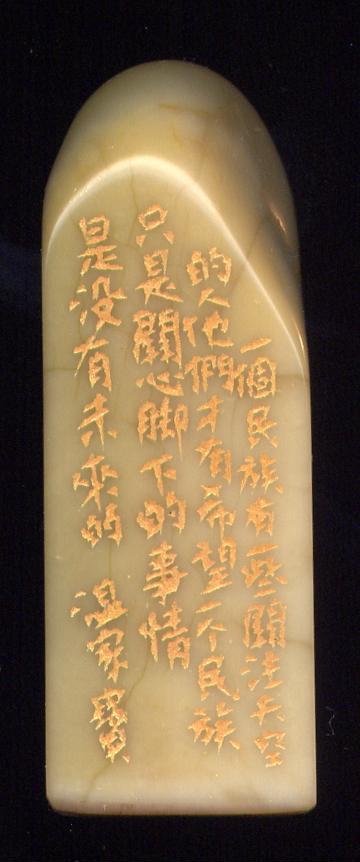 一個民族有一些關注天空
的人他們才有希望一个民族
只是關心脚下的事情
是没有未來的 温家寶